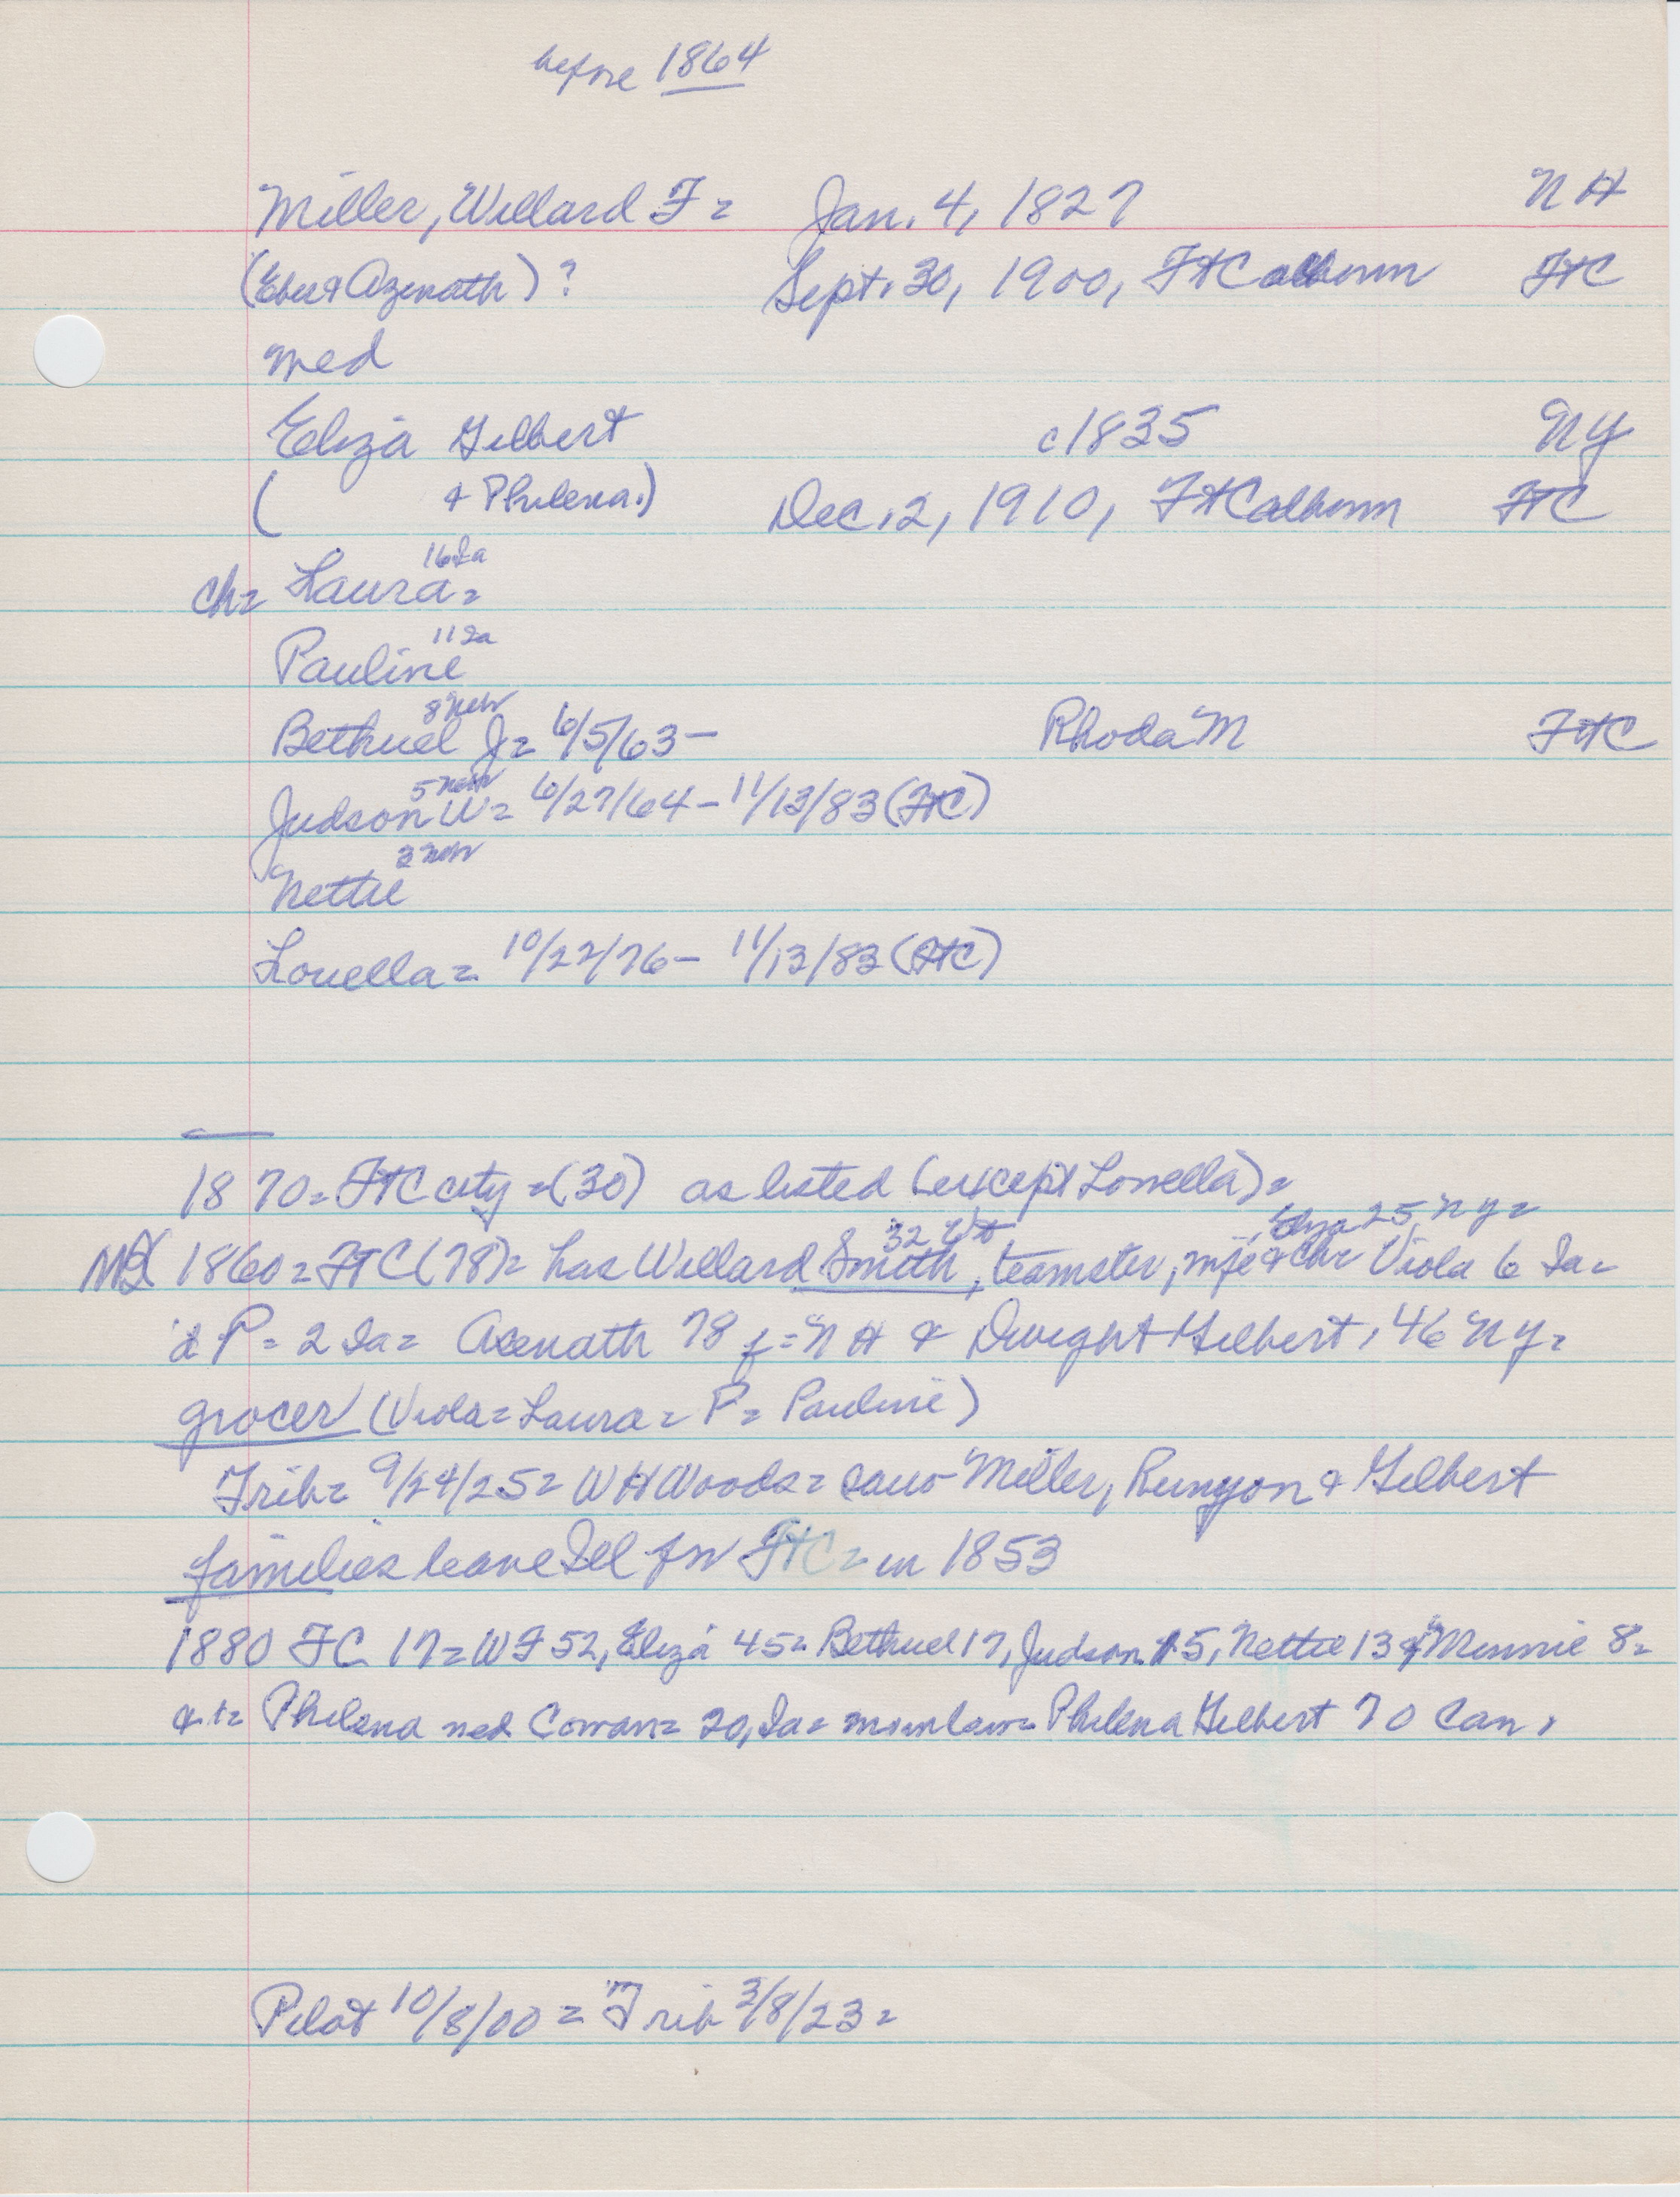 before 1864
Miller, Willard F = Jan. 4, 1827 NH
(Eber & Azenath) ? Sept. 30, 1900, Ft Calhoun FtC
med
Eliza Gilbert c1835 NY
( & Philena.) Dec. 2, 1910, Ft Calhoun FtC
16 Ia
ch= Laura =
11 Ia
Pauline
8 Neb
Bethuel J = 6/5/63 - Rhoda M FtC
5 Neb
Judson W = 6/27/64 - 11/13/83 (FtC)
3 Neb
Nettie
Louella = 10/22/76 - 11/13/83 (FtC)
1870 = FtC city = (30) as listed (except Louella) =
32 Vt , Eliza 25, NY =
1860 = FtC (78) = has Willard Smith, teamster, wife & chr Viola 6 Ia =
& P = 2 Ia = Asenath 78 f = NH & Dwight Gilbert, 46 NY =
grocer (Viola = Laura = P = Pauline)
Trib = 9/24/25 = WH Woods = saw Miller, Runyon & Gilbert
families leave Ill for FtC = in 1853
1880 FC 17 = WF 52, Eliza 45 = Bethuel 17, Judson 15, Nettie 13 & Minnie 8 =
Philena med Cowan = 20, Ia = mominlaw = Philena Gilbert 70 Can.
Pilot 10/8/00 = Trib 3/8/23 =